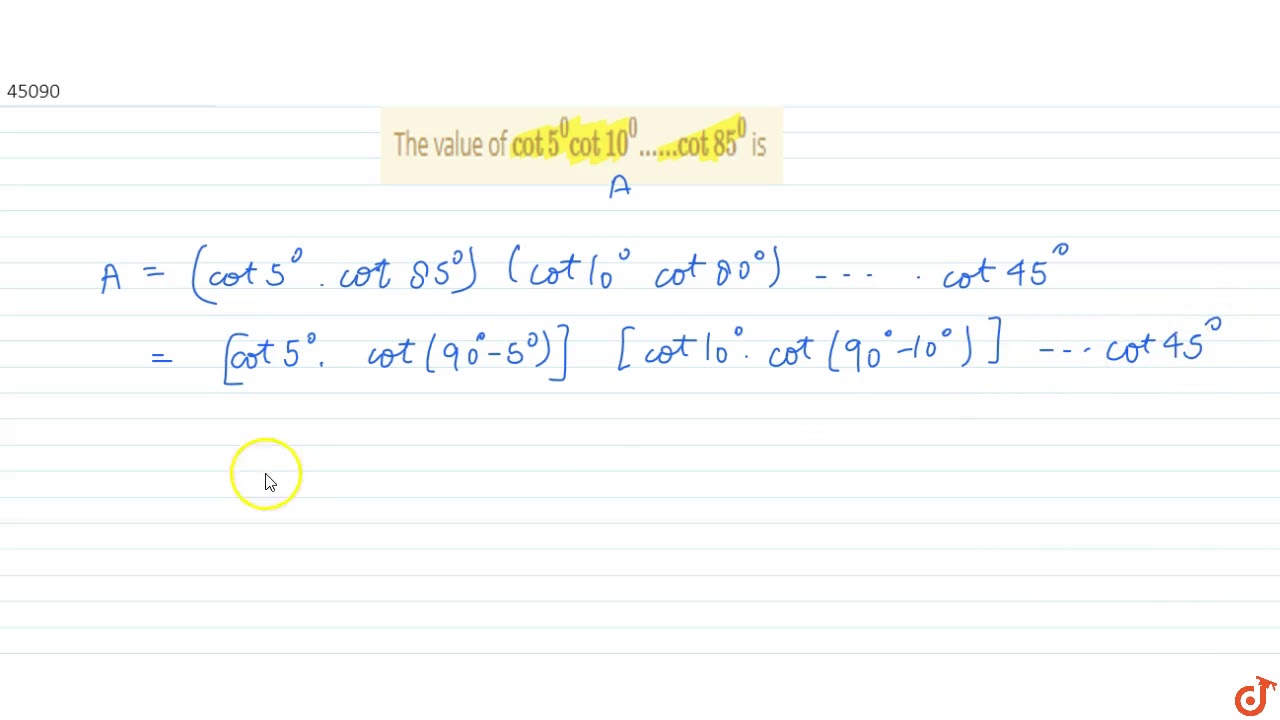 45090
The value of cot 5⁰cot 10⁰......cot 85⁰ is
A
A = (cot 5⁰ . cot 85⁰) (cot 10⁰ cot 80⁰) ---- . cot 45⁰
= [cot 5⁰. cot (90⁰-5⁰)] [cot 10⁰. cot (90⁰-10⁰)] ---- cot 45⁰